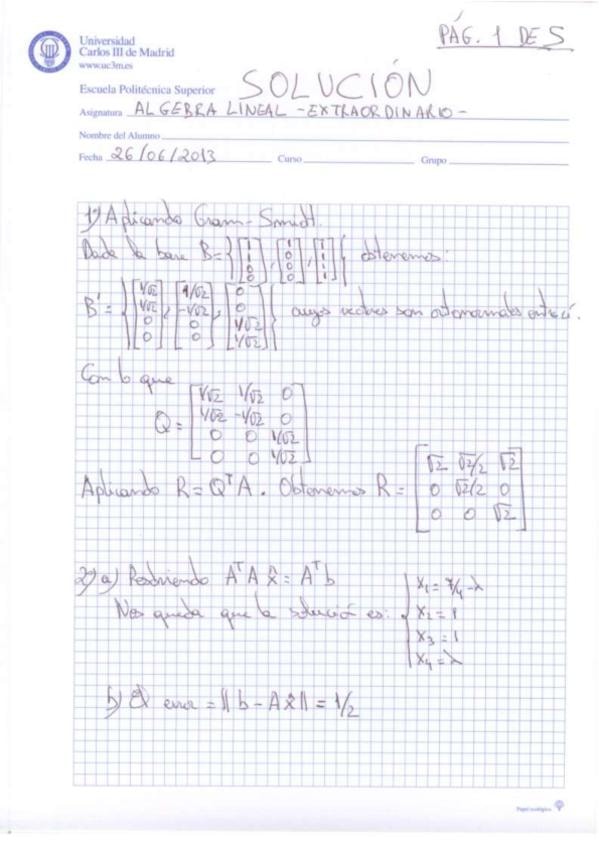 PÁG. 1 DE 5
Universidad
Carlos III de Madrid
www.uc3m.es
Escuela Politécnica Superior SOLUCIÓN
Asignatura ALGEBRA LINEAL -EXTRAORDINARIO-
Nombre del Alumno
Fecha 26/06/2013 Curso Grupo
1) Aplicando Gram-Smidt.
Dada la base B={[1 1 0 0], [1 0 0 0], [1 1 1 1]} obtenemos:
B'={[1/√2 1/√2 0 0], [1/√2 -1/√2 0 0], [0 0 1/√2 1/√2]} cuyos vectores son ortonormales entre sí.
Con lo que
Q = [1/√2 1/√2 0
1/√2 -1/√2 0
0 0 1/√2
0 0 1/√2]
Aplicando R=QᵀA. Obtenemos R= [√2 √2/2 √2
0 √2/2 0
0 0 √2]
2) a) Resolviendo AᵀA x̂ = Aᵀb
Nos queda que la solución es: { x₁ = 7/4 -λ
x₂ = 1
x₃ = 1
x₄ = λ
b) El error = ‖b - Ax̂‖ = 1/2
Papel ecológico